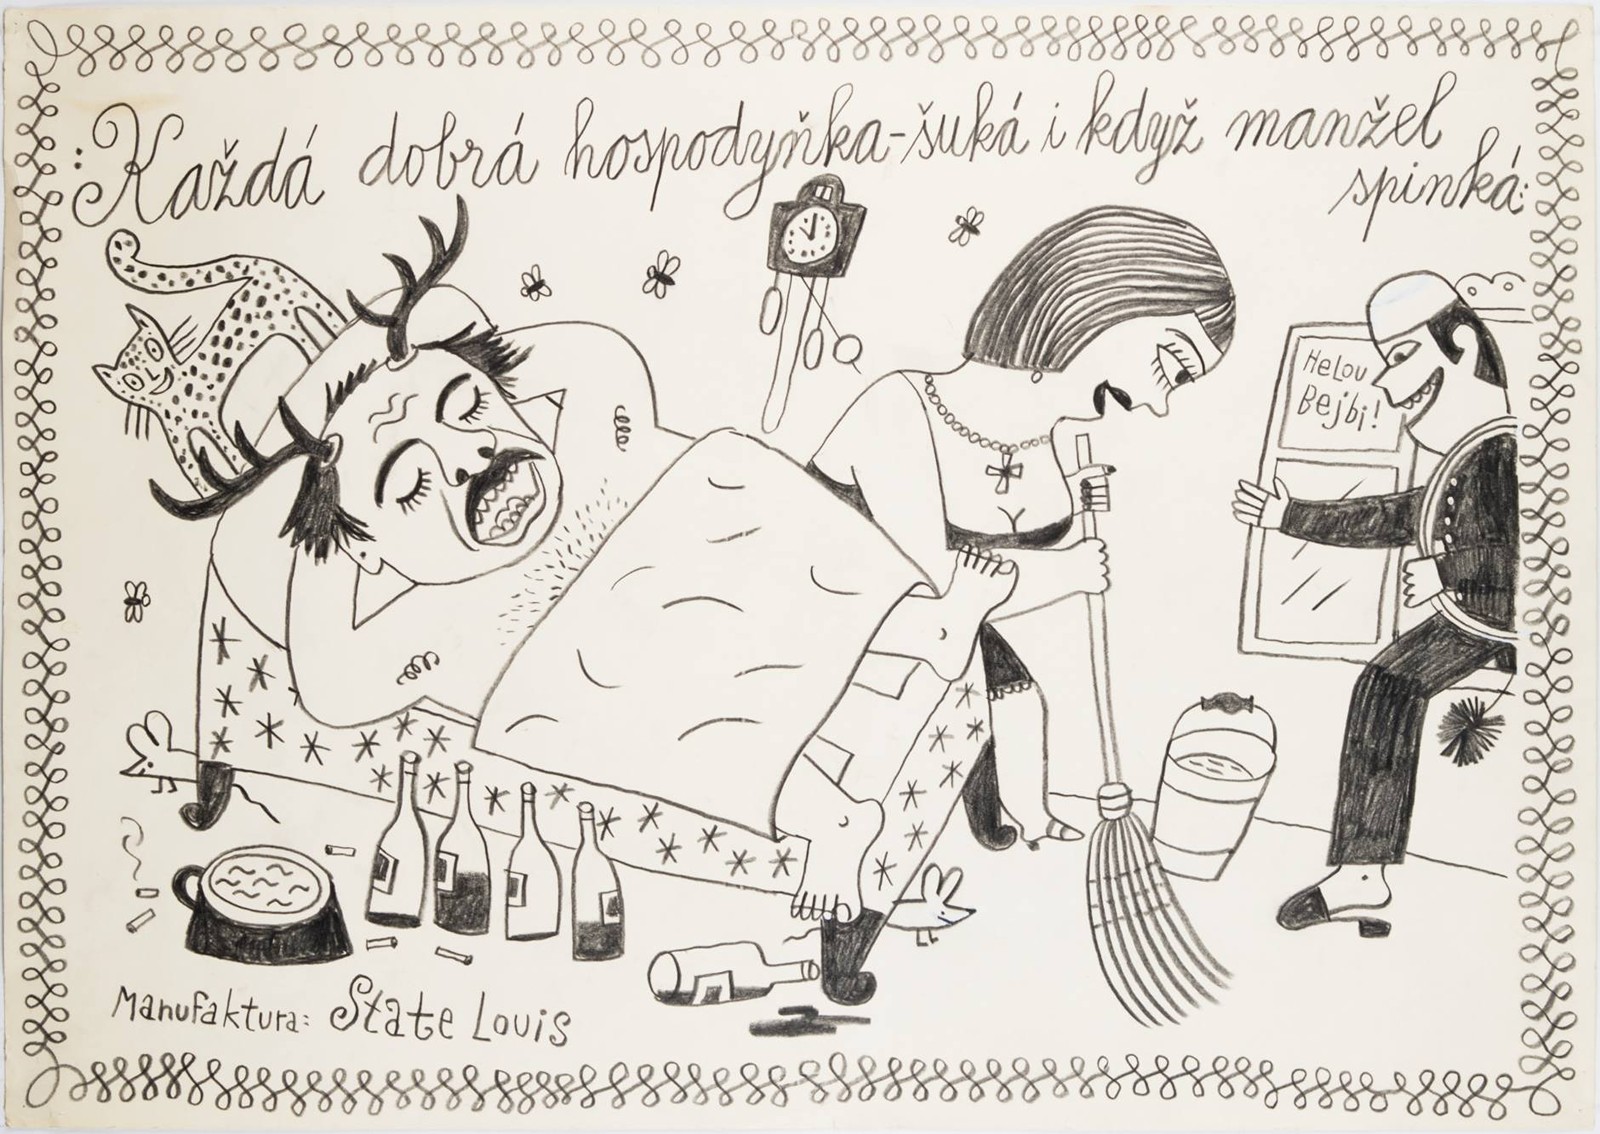 :Každá dobrá hospodyňka-šuká i když manžel
spinká:
Helou
Bejbi!
Manufaktura: State Louis